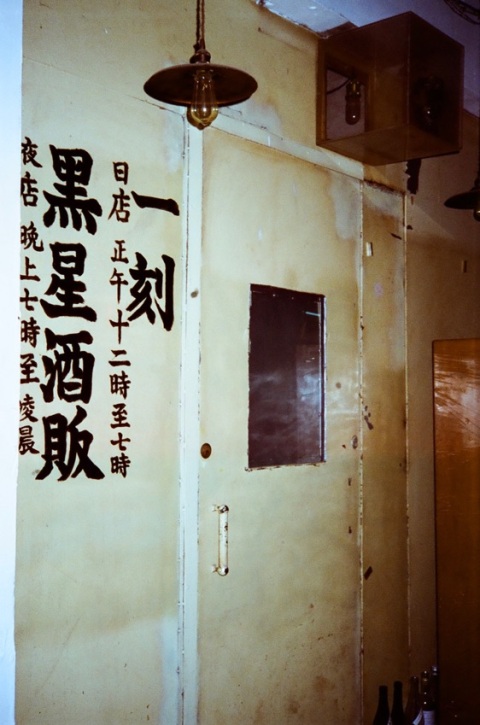 一刻
日店 正午十二時至七時
黒星酒販
夜店 晚上七時至凌晨